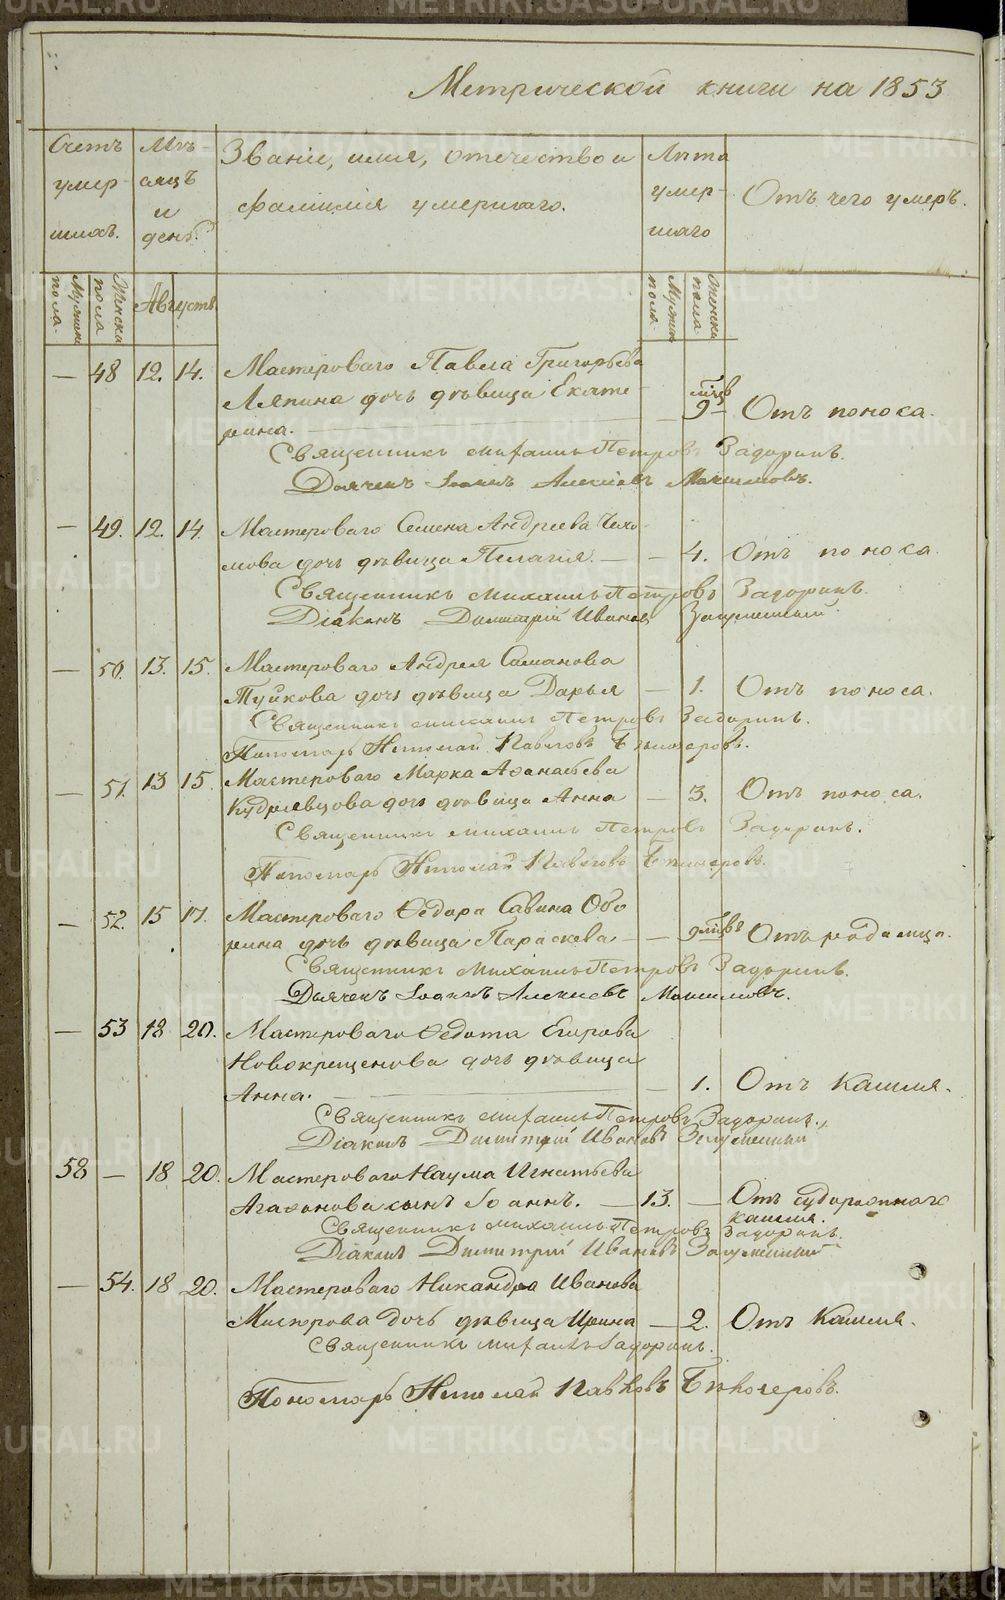 Метрической книги на 1853
Счетъ умер- шихъ.
Мѣсяцъ и день.
Званіе, имя, отечество и фамилія умершаго.
Лѣта умер- шаго
Отъ чего умеръ.
Мужеска пола.
Женска пола
Августъ
Мужеска пола
Женска пола
— 48 12. 14. Мастероваго Павла Григорьева
Ляпина дочь дѣвица Екате-
рина. — 9 мѣцв Отъ поноса.
Священникъ Михаилъ Петровъ Задоринъ.
Дьячекъ Іоаннъ Алексіевъ
— 49. 12. 14. Мастероваго Семена Андреева
мова дочь дѣвица Пелагія. — — 4. Отъ поноса
Священникъ Михаилъ Петровъ Задоринъ.
Діаконъ Димитрій Ивановъ
— 50. 13. 15. Мастероваго Андрея Симанова
Туйкова дочь дѣвица Дарья — 1. Отъ поноса.
Священникъ Михаилъ Петровъ Задоринъ.
Пономарь Николай Павловъ
— 51. 13 15. Мастероваго Марка Аѳанасьева
Кудрявцова дочь дѣвица Анна — 3. Отъ поноса.
Священникъ Михаилъ Петровъ Задоринъ.
Пономарь Николай Павловъ
— 52. 15 17. Мастероваго Ѳедора Савина Обо
рина дочь дѣвица Параскева — — 9 мѣцвъ Отъ родимца.
Священникъ Михаилъ Петровъ Задоринъ.
Дьячекъ Іоаннъ Алексіевъ
— 53 18 20. Мастероваго Ѳедота Егорова
Новокрещенова дочь дѣвица
Анна. — — 1. Отъ Кашля.
Священникъ Михаилъ Петровъ Задоринъ.
Діаконъ Димитрій Ивановъ
58 — 18 20. Мастероваго Наума Игнатьева
Агаѳонова сынъ Іоаннъ. — 13. — Отъ судорожнаго
кашля.
Священникъ Михаилъ Петровъ Задоринъ.
Діаконъ Димитрій Ивановъ
— 54. 18 20. Мастероваго Никандра Иванова
Мисюрова дочь дѣвица Ирина — 2. Отъ Кашля.
Священникъ Михаилъ Задоринъ.
Пономарь Николай Павловъ
METRIKI.GASO-URAL.RU